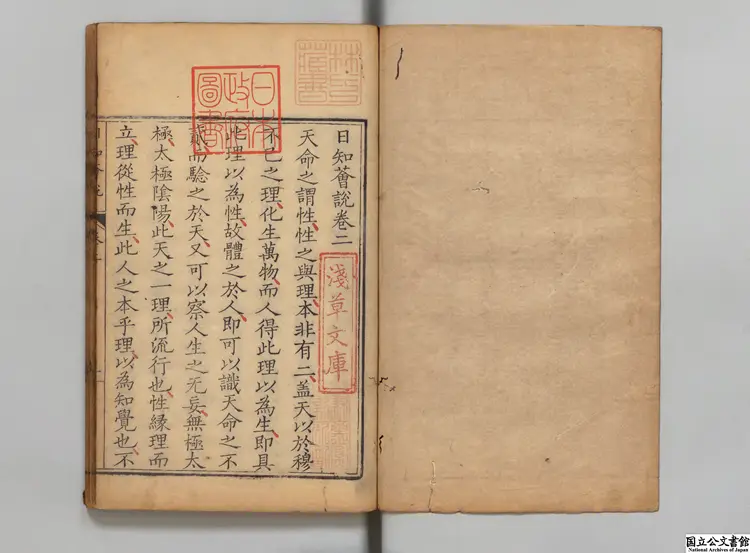 日知薈說卷二
天命之謂性性之與理本非有二盖天以於穆
不已之理化生萬物而人得此理以為生即具
此理以為性故體之於人即可以識天命之不
貳而驗之於天又可以察人生之无妄無極太
極太極陰陽此天之一理所流行也性緣理而
立理從性而生此人之本乎理以為知覺也不
日本
政府
圖書
林氏
藏書
淺草文庫
国立公文書館
National Archives of Japan